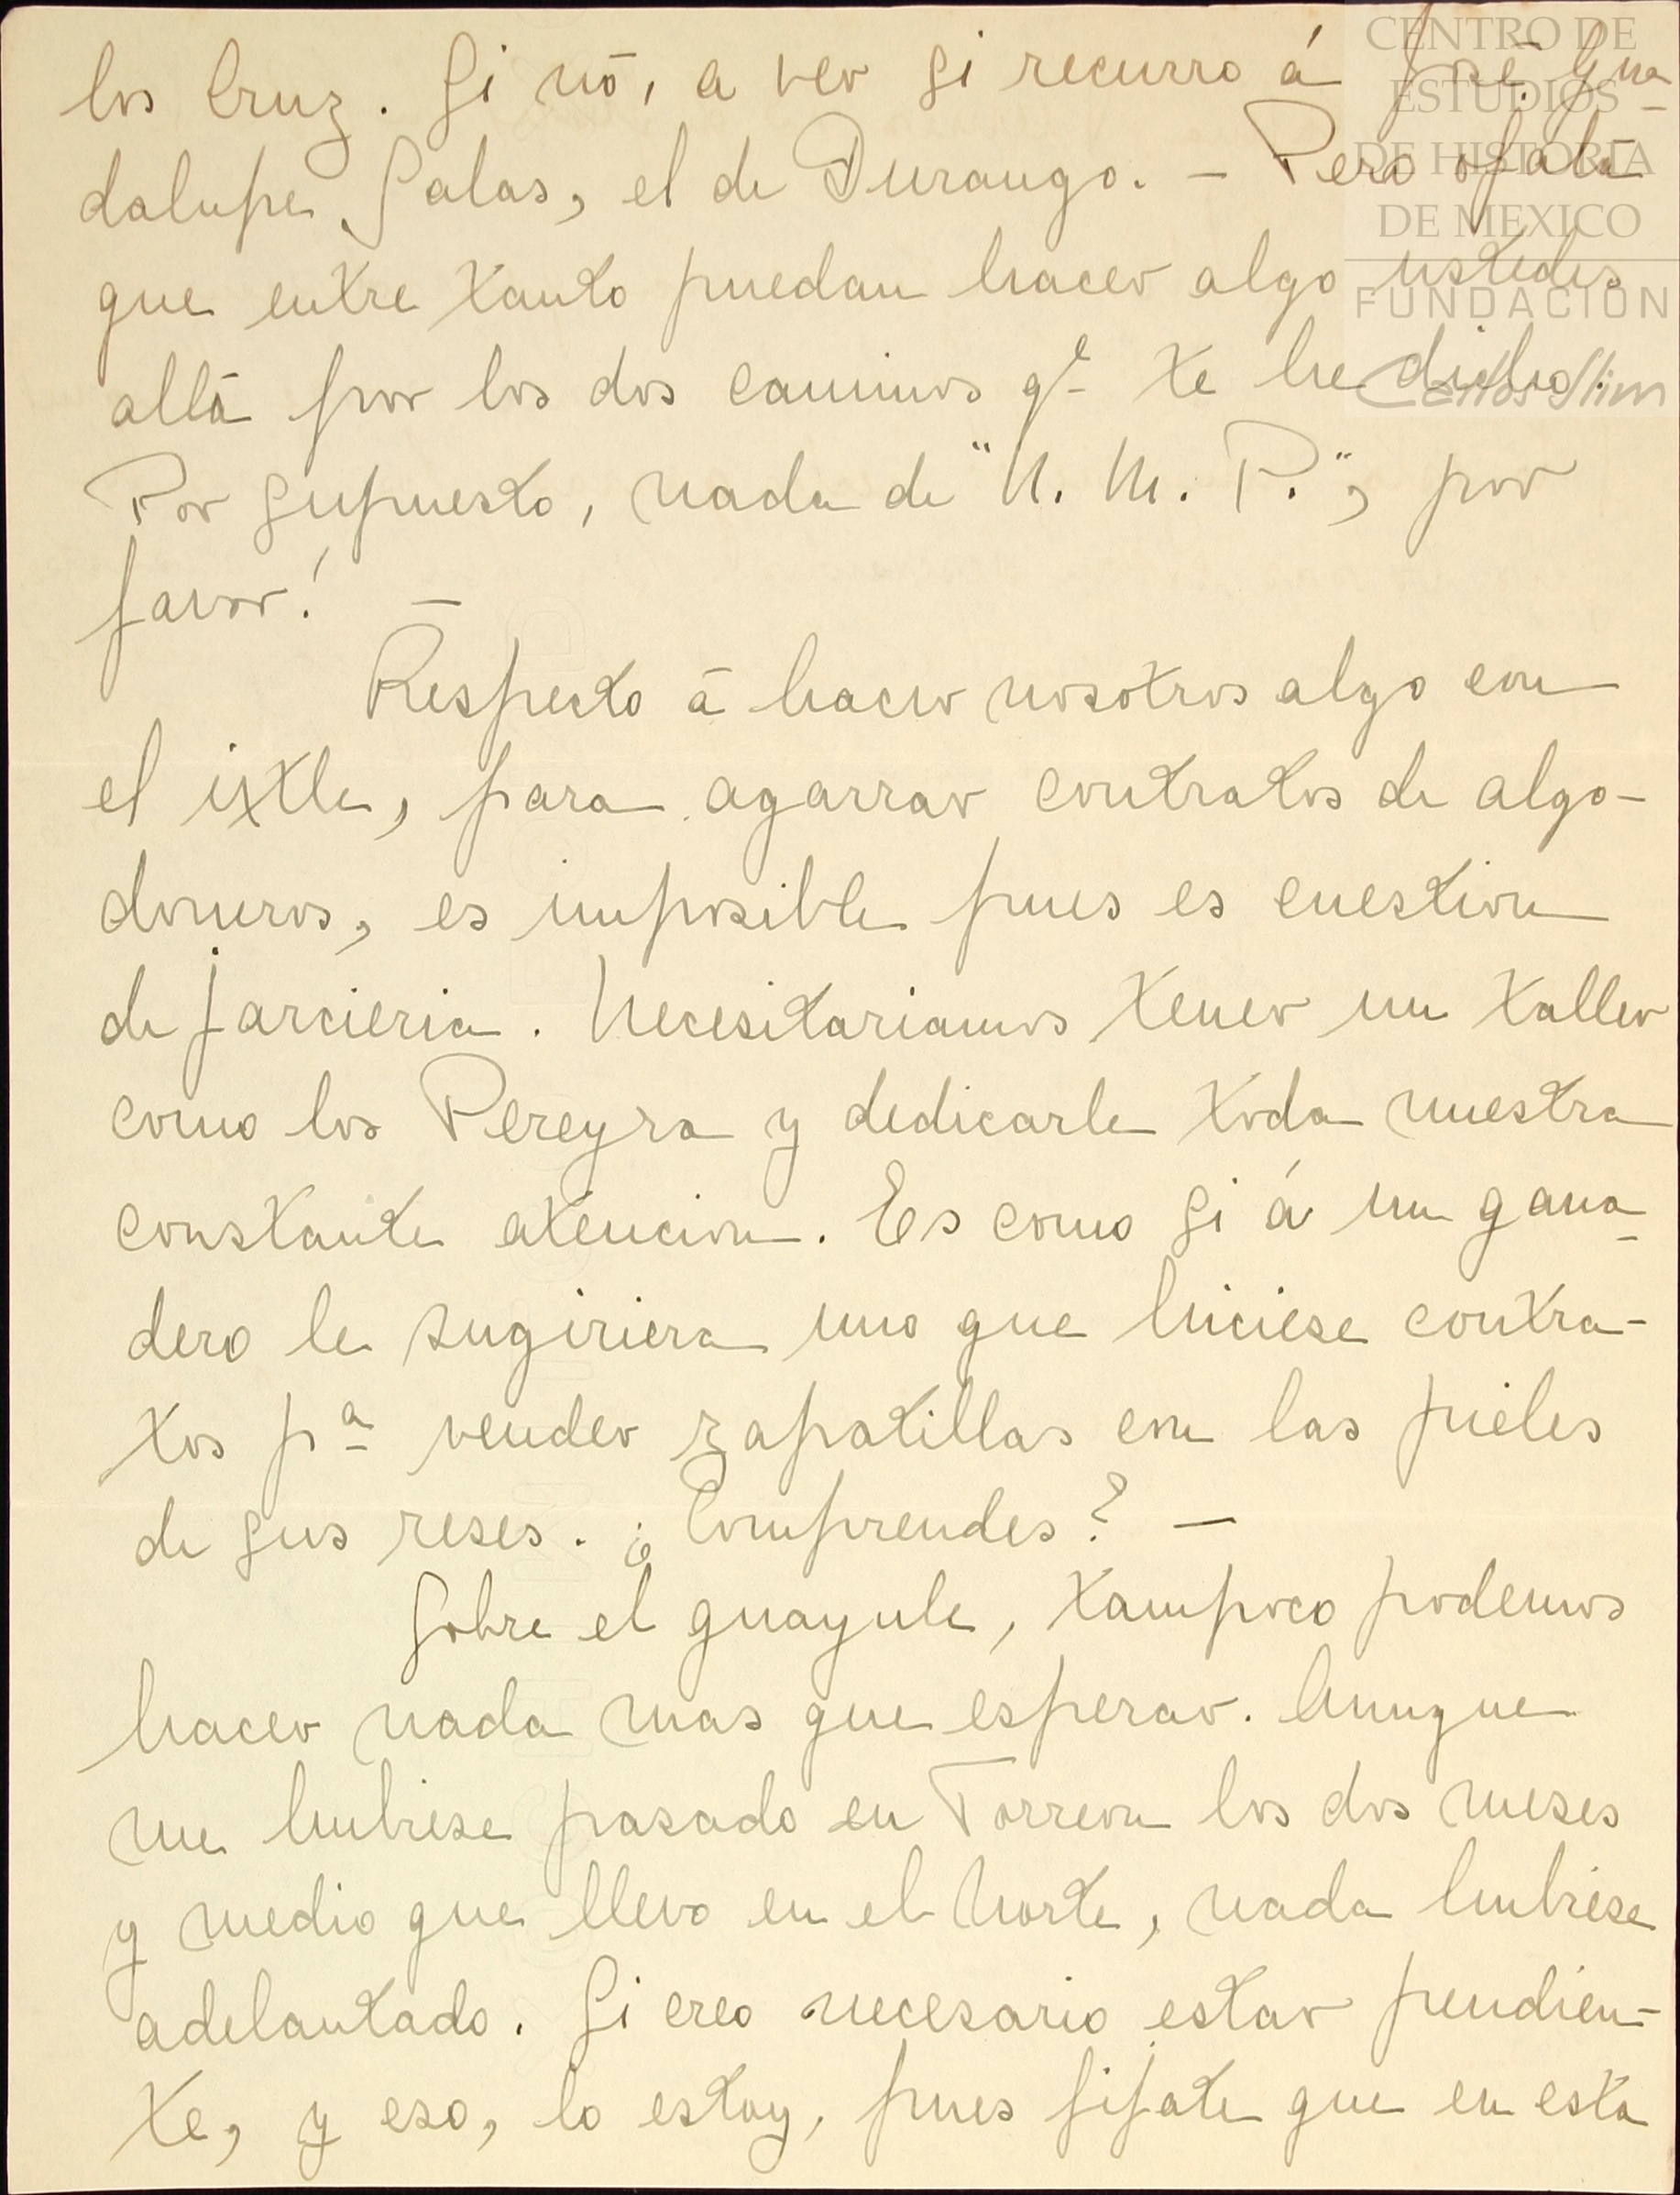 los Cruz. Si nó, a ver si recurro á José Gua-
dalupe Salas, el de Durango. — Pero ojalá
que entre tanto puedan hacer algo ustedes
allá por los dos caminos qe te he dicho.
Por supuesto, nada de "N. M. P.", por
favor! —
Respecto á hacer nosotros algo con
el ixtle, para agarrar contratos de algo-
doneros, es imposible pues es cuestion
de jarcieria. Necesitariamos tener un taller
como los Pereyra y dedicarle toda nuestra
constante atencion. Es como si á un gana-
dero le sugiriera uno que hiciese contra-
tos pa vender zapatillas con las pieles
de sus reses. ¿Comprendes? —
Sobre el guayule, tampoco podemos
hacer nada mas que esperar. Aunque
me hubiese pasado en Torreon los dos meses
y medio que llevo en el Norte, nada hubiese
adelantado. Si creo necesario estar pendien-
te, y eso, lo estoy, pues fijate que en esta
CENTRO DE
ESTUDIOS
DE HISTORIA
DE MEXICO
FUNDACION
Carlos Slim